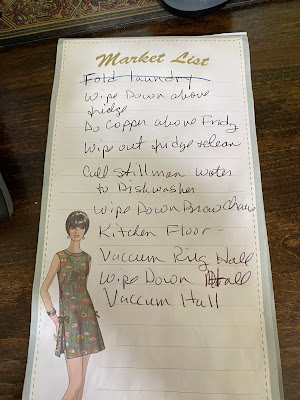 Market List
Fold laundry
Wipe Down above
fridge
Do Copper above Fridg
Wipe out fridge & clean
Call Stillman water
to Dishwasher
Wipe Down Brow Chair
Kitchen Floor -
Vaccum Ring Hall
Wipe Down Hall
Vaccum Hall